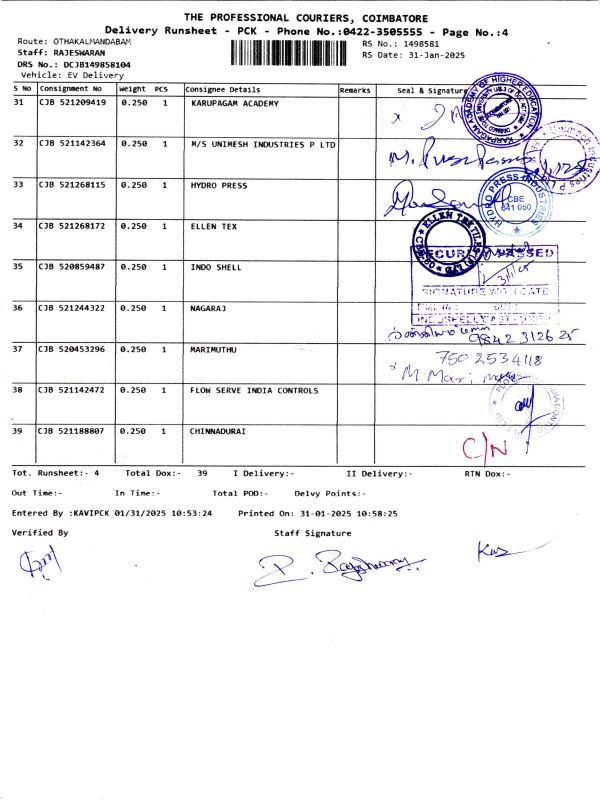 THE PROFESSIONAL COURIERS, COIMBATORE
Delivery Runsheet - PCK - Phone No.:0422-3505555 - Page No.:4
Route: OTHAKALMANDABAM
RS No.: 1498581
Staff: RAJESWARAN
RS Date: 31-Jan-2025
DRS No.: DCJB149858104
Vehicle: EV Delivery
S No Consignment No Weight PCS Consignee Details Remarks Seal & Signature
31 CJB 521209419 0.250 1 KARUPAGAM ACADEMY
KARPAGAM ACADEMY OF HIGHER EDUCATION
32 CJB 521142364 0.250 1 M/S UNIMESH INDUSTRIES P LTD
33 CJB 521268115 0.250 1 HYDRO PRESS
HYDRO PRESS INDUSTRIES
CBE
641 050
34 CJB 521268172 0.250 1 ELLEN TEX
35 CJB 520859487 0.250 1 INDO SHELL
36 CJB 521244322 0.250 1 NAGARAJ
9842312625
37 CJB 520453296 0.250 1 MARIMUTHU
7502534118
38 CJB 521142472 0.250 1 FLOW SERVE INDIA CONTROLS
39 CJB 521188807 0.250 1 CHINNADURAI
C/N
Tot. Runsheet:- 4 Total Dox:- 39 I Delivery:- II Delivery:- RTN Dox:-
Out Time:- In Time:- Total POD:- Delvy Points:-
Entered By :KAVIPCK 01/31/2025 10:53:24 Printed On: 31-01-2025 10:58:25
Verified By Staff Signature